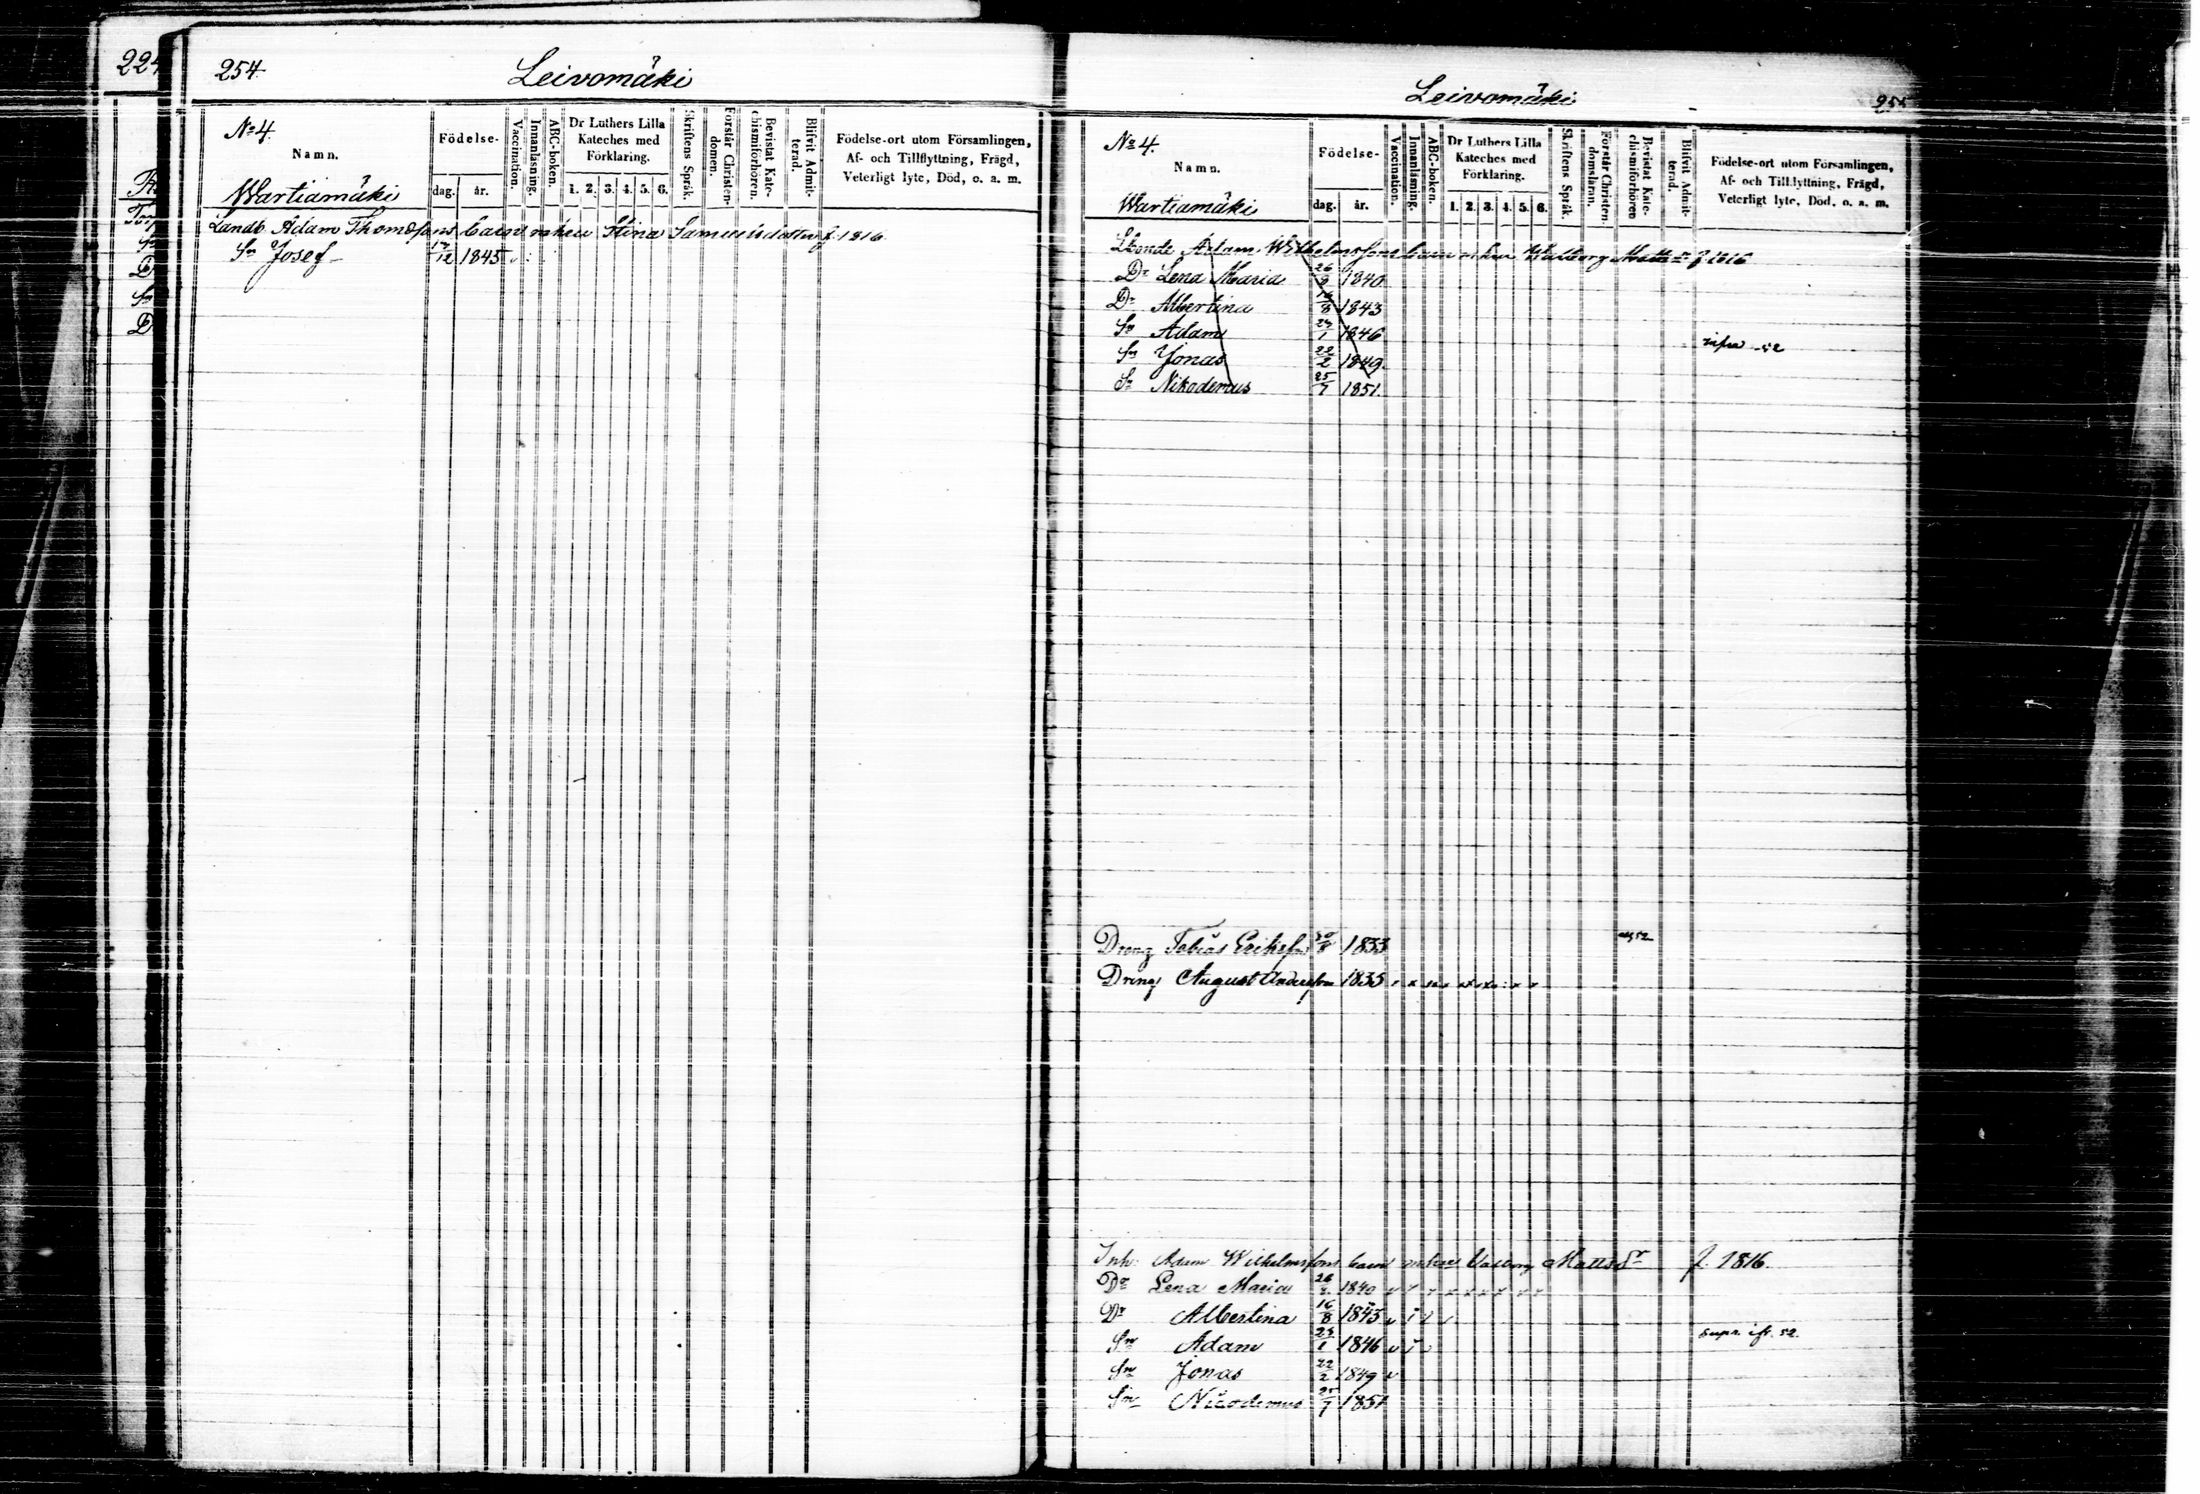 224
254
Leivomäki
No 4.
Namn.
Wartiamäki
Födelse-
dag.
år.
Vaccination.
Innanläsning.
ABC-boken.
Dr Luthers Lilla
Kateches med
Förklaring.
1. 2. 3. 4. 5. 6.
Skriftens Språk.
Förstår Christen-
domen.
Bevistat Kate-
chismiförhören.
Blifvit Admit-
terad.
Födelse-ort utom Församlingen,
Af- och Tillflyttning, Frägd,
Veterligt lyte, Död, o. a. m.
Landb Adam Thomæsons barn m hen Stina Samuelsdotter f. 1816
Sn Josef 12 1845
Leivomäki
255
No 4.
Namn.
Wartiamäki
Födelse-
dag.
år.
Vaccination.
Innanläsning.
ABC-boken.
Dr Luthers Lilla
Kateches med
Förklaring.
1. 2. 3. 4. 5. 6.
Skriftens Språk.
Förstår Christen-
domsläran.
Bevistat Kate-
chismiförhören
Blifvit Admit-
terad.
Födelse-ort utom Församlingen,
Af- och Tillflyttning, Frägd,
Veterligt lyte, Död, o. a. m.
Adam Wilhelmssons barn m hen Walborg Matts dr f 1816
Dr Lena Maria 26 1840
Dr Albertina 16/8 1843
Sn Adam 24/1 1846 infra 52
Sn Jonas 22/2 1849.
Sn Nikodemus 25/7 1851.
Dreng Tobias Eriksson 1833 52
Dreng August Andersson 1835
Inh: Adam Wilhelmssons barn m hen Valborg Matts Dr f. 1816.
Dr Lena Maria 26 1840
Dr Albertina 16/8 1843
Sn Adam 24/1 1846 supr. 52.
Sn Jonas 22/2 1849
Sn Nicodemus 25/7 1851